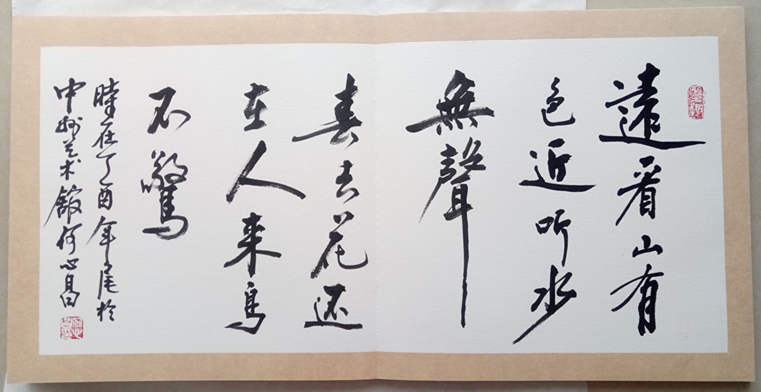 遠看山有
色近听水
無聲
春去花还
在人来鸟
不驚
時在丁酉年尾於
中州艺术館何心昌